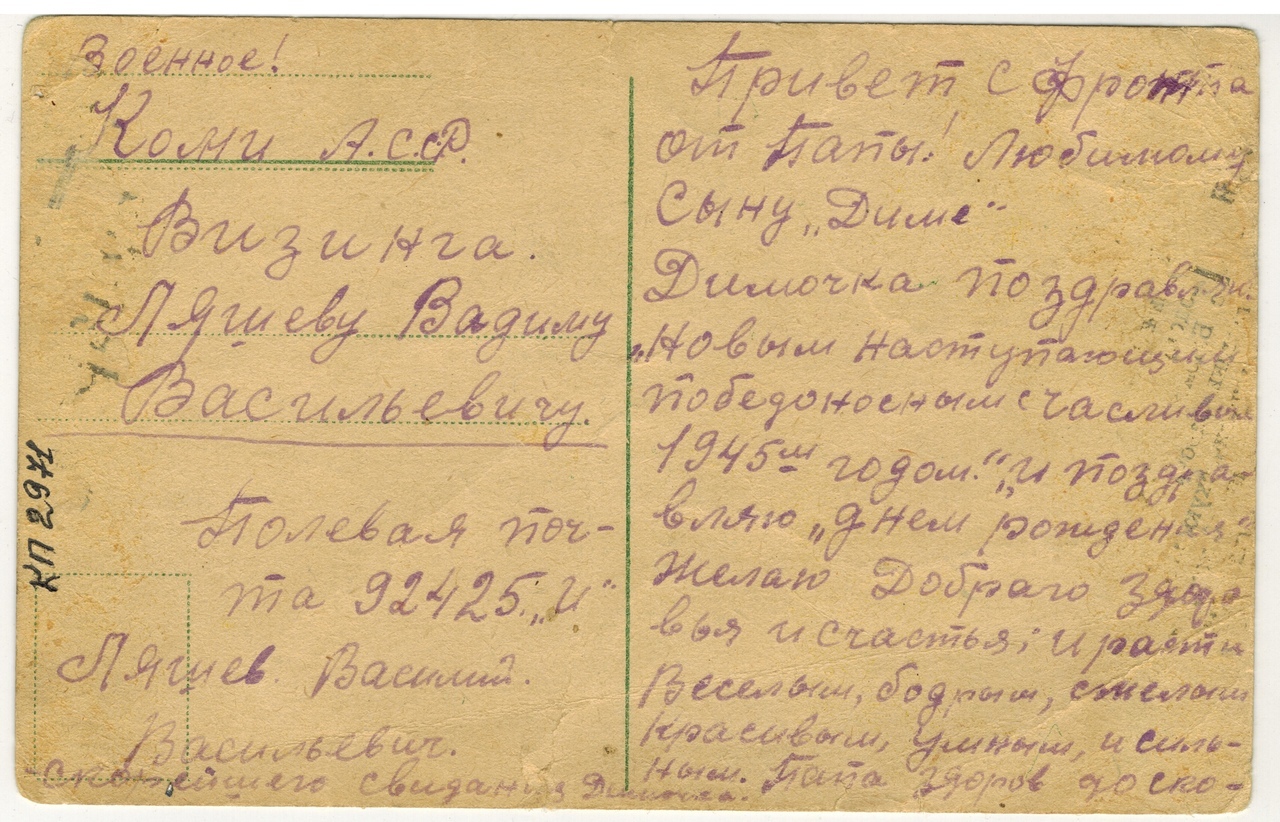 Военное!
Коми А.С.С.Р.
Визинга.
Лягшеву Вадиму
Васильевичу.
Полевая поч-
та 92425. „И“
Лягшев. Василий.
Васильевич.
КП 2971
Привет с фронта
от Папы! Любимому
Сыну „Диме“
Димочка поздравляю
„Новым наступающим
победоносным счасливым
1945м годом.“ „и поздра-
вляю „днем рождения“
Желаю Добраго здоро
вья и счастья; и расти
Веселым, бодрым, смелым
Красивым, умным, и силь-
ным. Папа здоров до ско-
Скорейшего свидания Димочка.